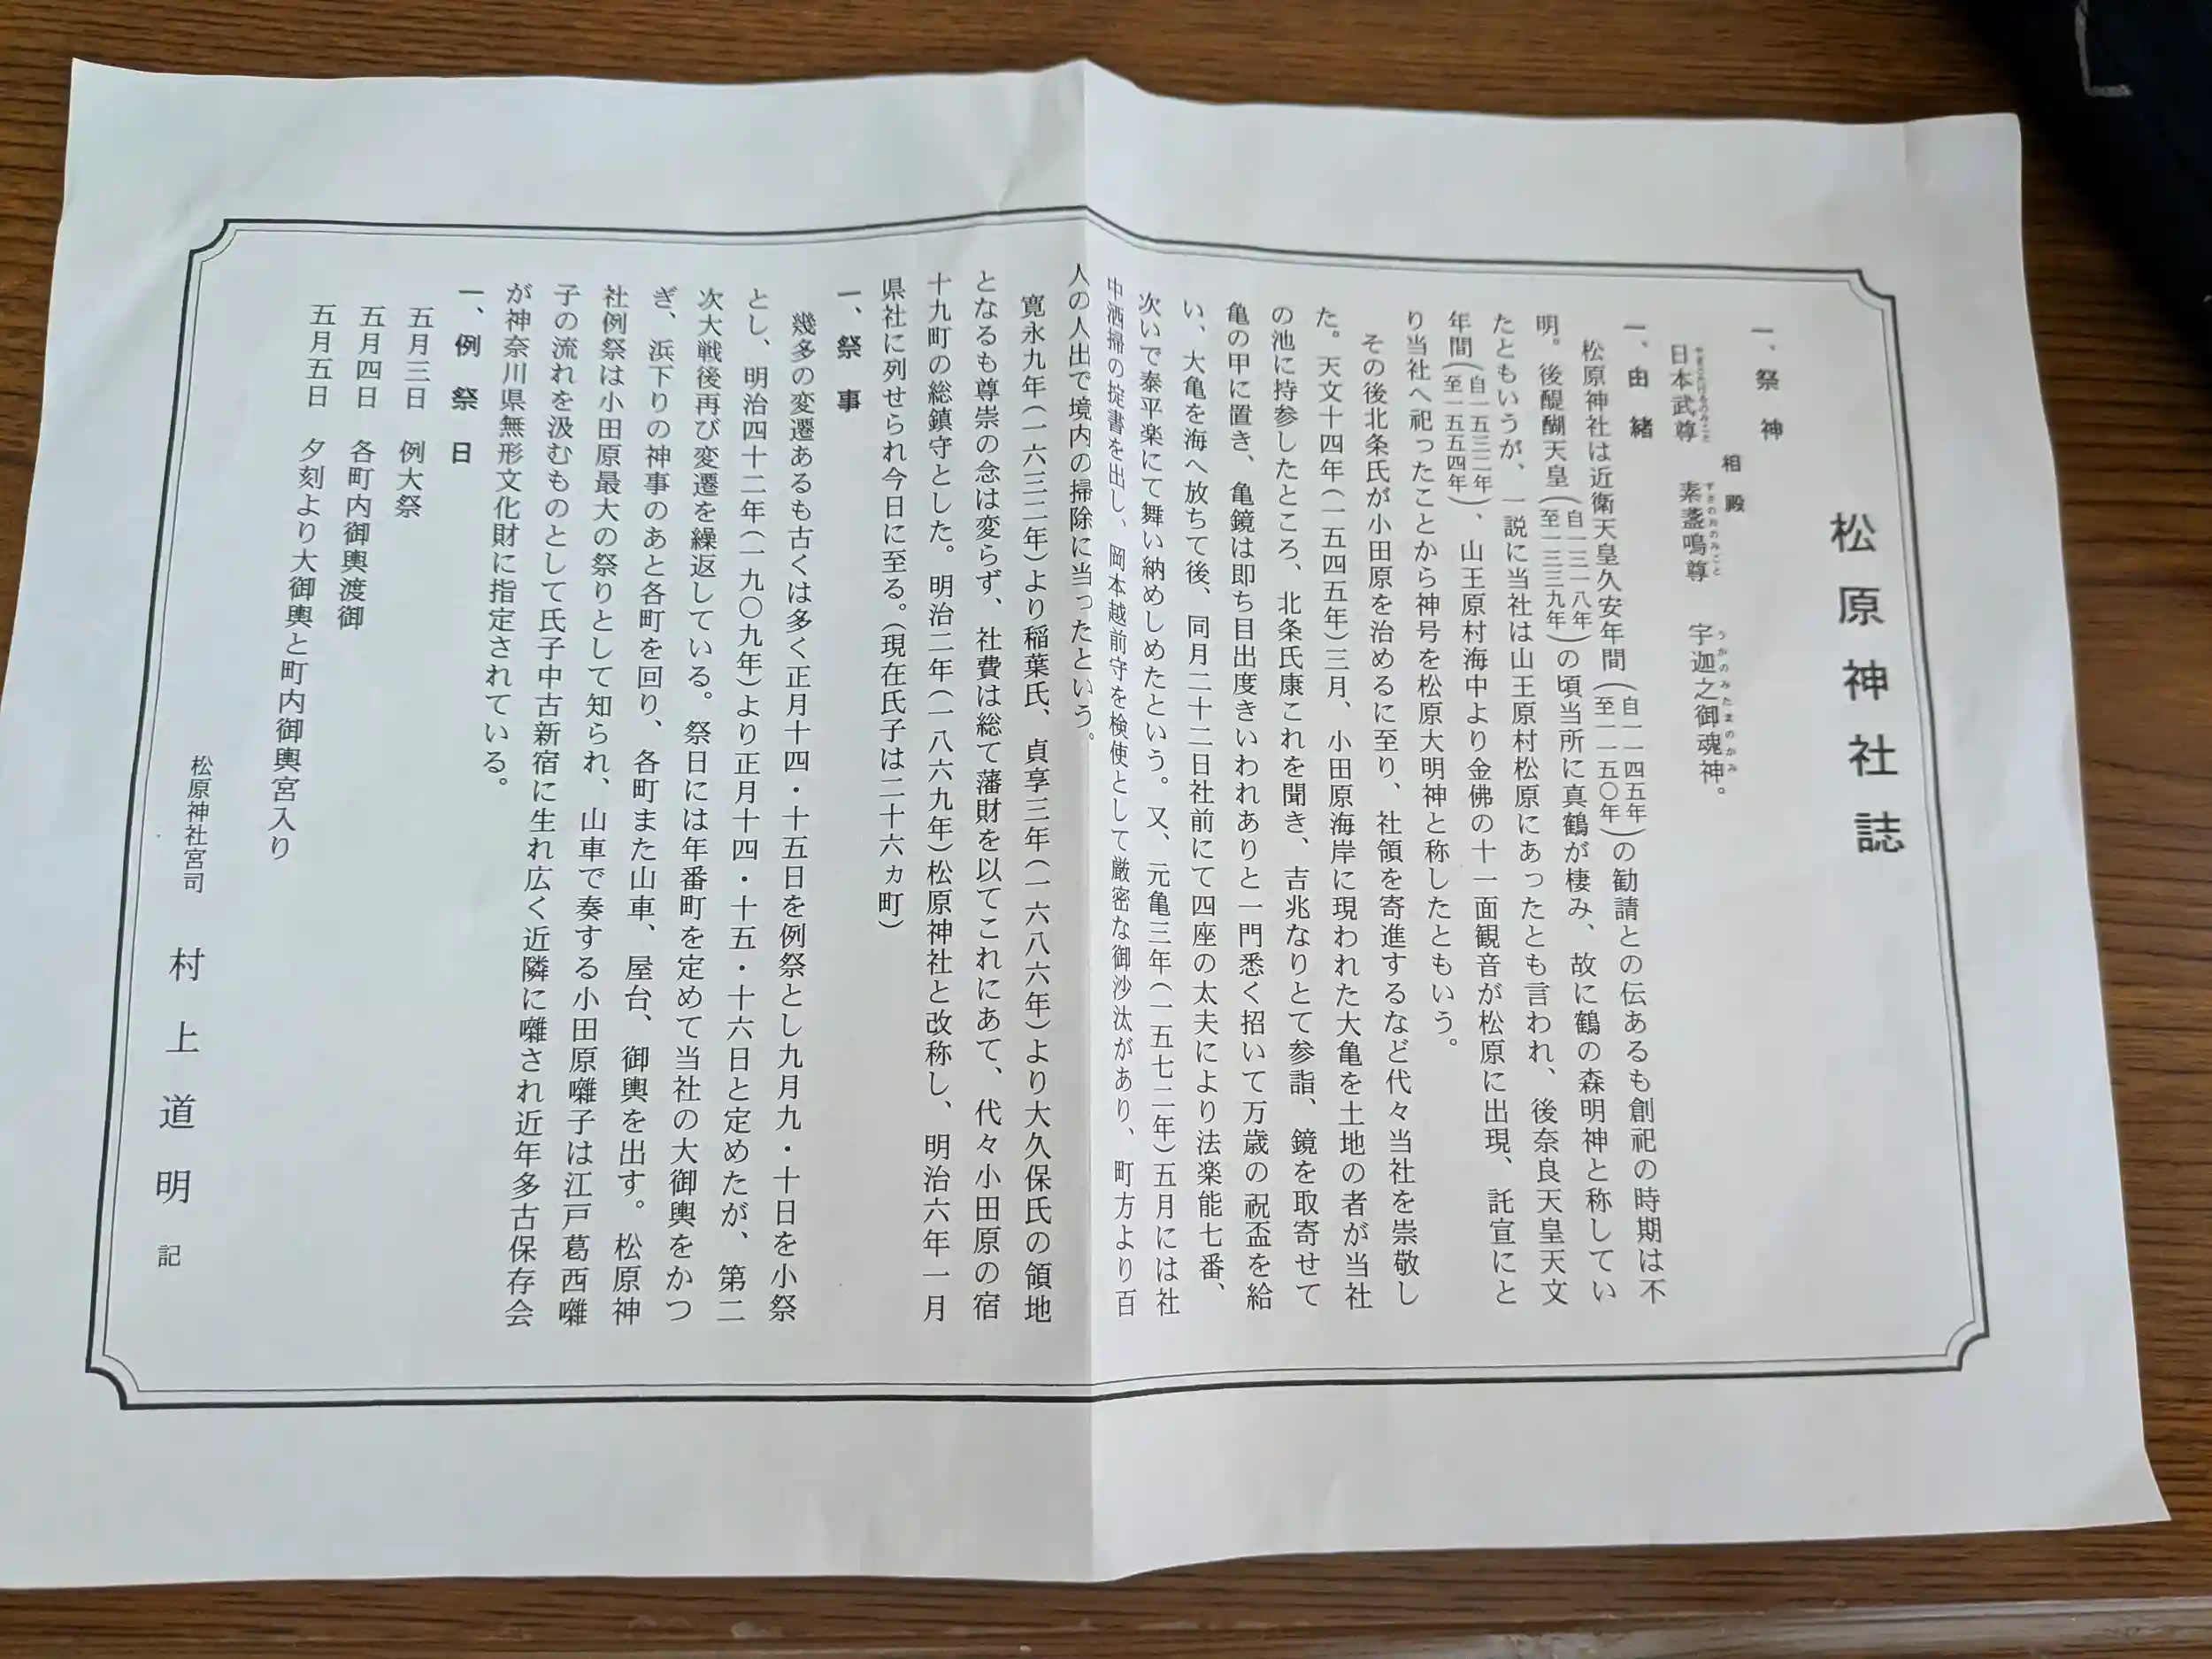 松原神社誌
一、祭神
相殿
日本武尊 素盞鳴尊 宇迦之御魂神。
やまとたけるのみこと すさのおのみこと うかのみたまのかみ
一、由緒
松原神社は近衛天皇久安年間(自一一四五年 至一一五〇年)の勧請との伝あるも創祀の時期は不
明。後醍醐天皇(自一三一八年 至一三三九年)の頃当所に真鶴が棲み、故に鶴の森明神と称してい
たともいうが、一説に当社は山王原村松原にあったとも言われ、後奈良天皇天文
年間(自一五三二年 至一五五四年)、山王原村海中より金佛の十一面観音が松原に出現、託宣にと
り当社へ祀ったことから神号を松原大明神と称したともいう。
その後北条氏が小田原を治めるに至り、社領を寄進するなど代々当社を崇敬し
た。天文十四年(一五四五年)三月、小田原海岸に現われた大亀を土地の者が当社
の池に持参したところ、北条氏康これを聞き、吉兆なりとて参詣、鏡を取寄せて
亀の甲に置き、亀鏡は即ち目出度きいわれありと一門悉く招いて万歳の祝盃を給
い、大亀を海へ放ちて後、同月二十二日社前にて四座の太夫により法楽能七番、
次いで泰平楽にて舞い納めしめたという。又、元亀三年(一五七二年)五月には社
中洒掃の掟書を出し、岡本越前守を検使として厳密な御沙汰があり、町方より百
人の人出で境内の掃除に当ったという。
寛永九年(一六三二年)より稲葉氏、貞享三年(一六八六年)より大久保氏の領地
となるも尊崇の念は変らず、社費は総て藩財を以てこれにあて、代々小田原の宿
十九町の総鎮守とした。明治二年(一八六九年)松原神社と改称し、明治六年一月
県社に列せられ今日に至る。(現在氏子は二十六ヵ町)
一、祭事
幾多の変遷あるも古くは多く正月十四・十五日を例祭とし九月九・十日を小祭
とし、明治四十二年(一九〇九年)より正月十四・十五・十六日と定めたが、第二
次大戦後再び変遷を繰返している。祭日には年番町を定めて当社の大御輿をかつ
ぎ、浜下りの神事のあと各町を回り、各町また山車、屋台、御輿を出す。松原神
社例祭は小田原最大の祭りとして知られ、山車で奏する小田原囃子は江戸葛西囃
子の流れを汲むものとして氏子中古新宿に生れ広く近隣に囃され近年多古保存会
が神奈川県無形文化財に指定されている。
一、例祭日
五月三日 例大祭
五月四日 各町内御輿渡御
五月五日 夕刻より大御輿と町内御輿宮入り
松原神社宮司 村上道明 記